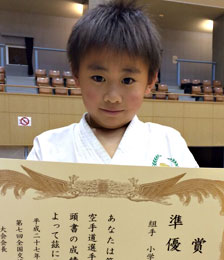 賞
準優
組手 小学
あなたは第
空手道選手
頭書の成績
よって茲に
平成二十七年
第七回全国交
大会会長